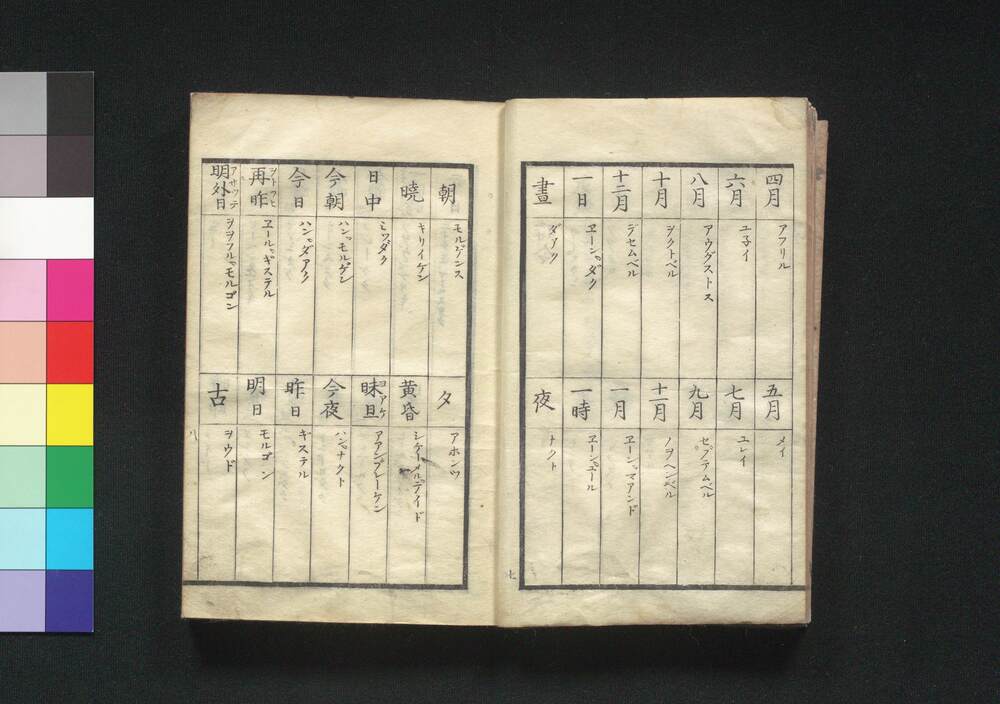 四月
アフリル
五月
メイ
六月
ユ子イ
七月
ユレイ
八月
アウグストス
九月
セプテムベル
十月
ヲクトベル
十一月
ノヲヘンベル
十二月
デセムベル
一月
ヱーンマアンド
一日
ヱーンダク
一時
ヱーンユール
晝
ダアク
夜
ナクト
七
朝
モルゲンス
夕
アホンツ
曉
キリイケン
黄昏
シケートメルテイド
日中
ミツダク
昧旦
ヨアケ
アアンブレーケン
今朝
ハンモルゲン
今夜
ハンナクト
今日
ハンダアク
昨日
ギステル
再昨
ヲトツヒ
ヱールギステル
明日
モルゴン
明外日
アサツテ
ヲヲフルモルゴン
古
ヲウド
八